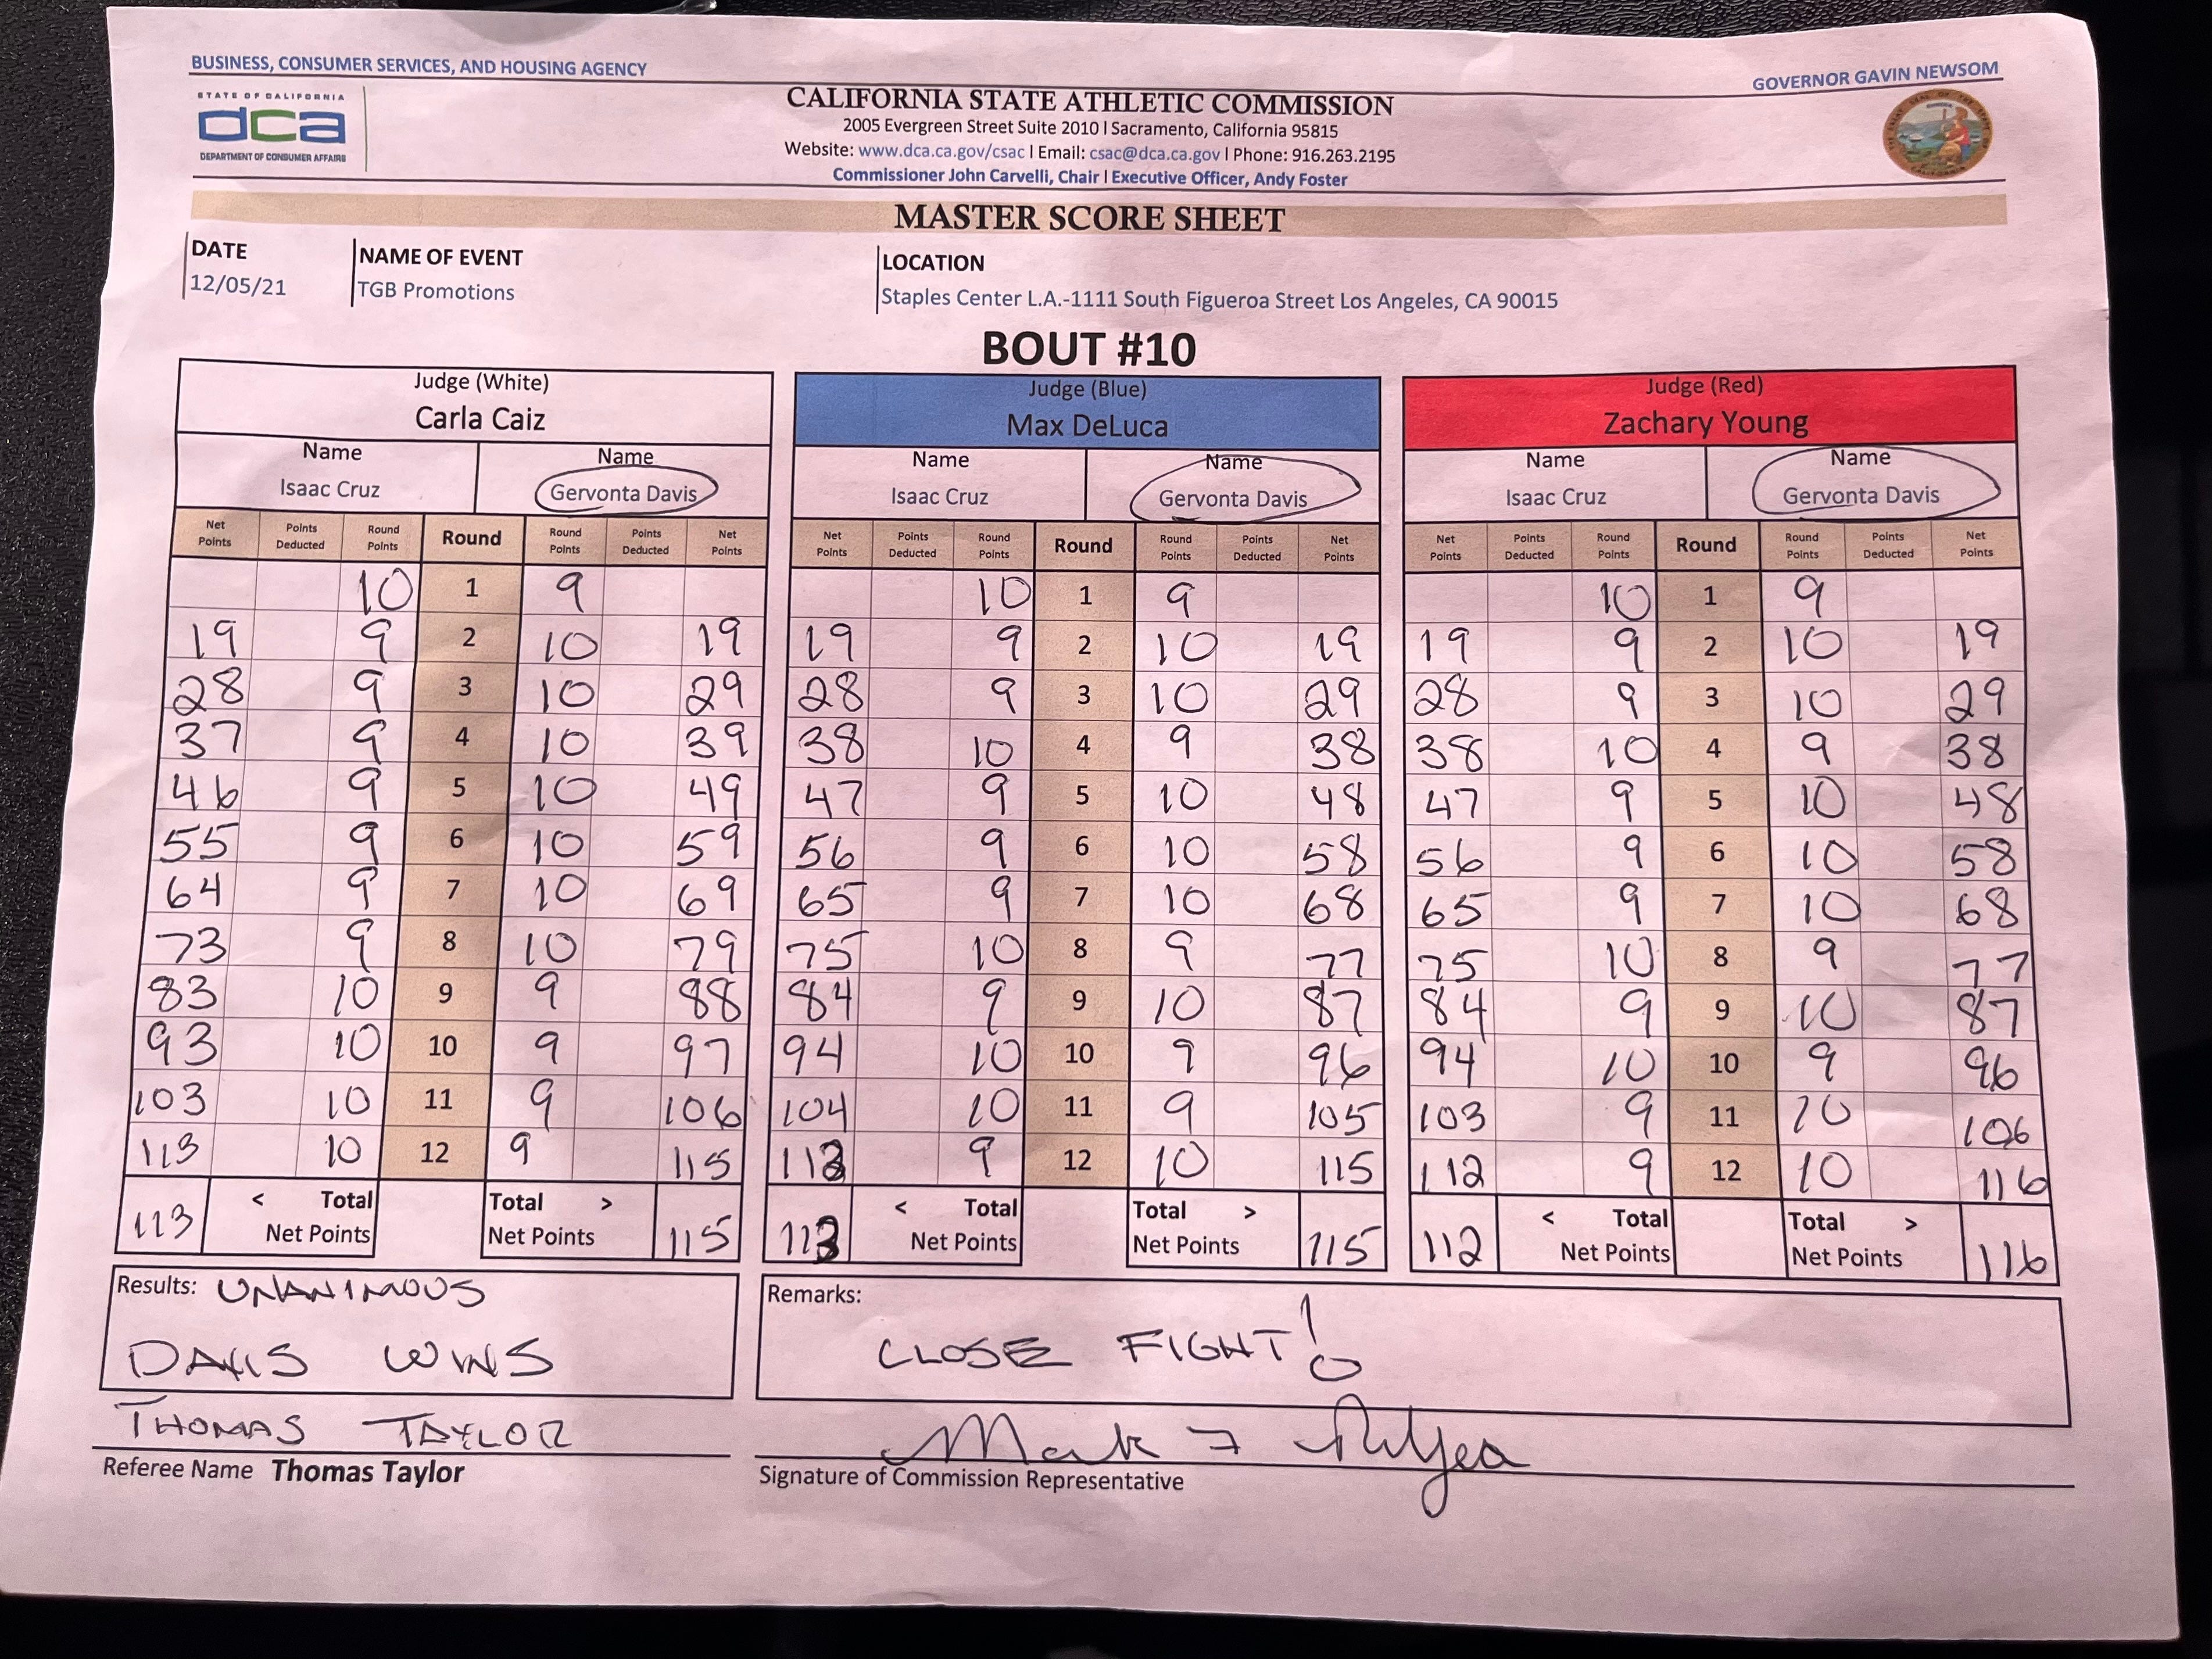 BUSINESS, CONSUMER SERVICES, AND HOUSING AGENCY
GOVERNOR GAVIN NEWSOM
STATE OF CALIFORNIA
dca
DEPARTMENT OF CONSUMER AFFAIRS
CALIFORNIA STATE ATHLETIC COMMISSION
2005 Evergreen Street Suite 2010 | Sacramento, California 95815
Website: www.dca.ca.gov/csac | Email: csac@dca.ca.gov | Phone: 916.263.2195
Commissioner John Carvelli, Chair | Executive Officer, Andy Foster
MASTER SCORE SHEET
DATE NAME OF EVENT LOCATION
12/05/21 TGB Promotions Staples Center L.A.-1111 South Figueroa Street Los Angeles, CA 90015
BOUT #10
Judge (White) Judge (Blue) Judge (Red)
Carla Caiz Max DeLuca Zachary Young
Name Name Name Name Name Name
Isaac Cruz Gervonta Davis Isaac Cruz Gervonta Davis Isaac Cruz Gervonta Davis
Net Points Points Deducted Round Points Round Round Points Points Deducted Net Points Net Points Points Deducted Round Points Round Round Points Points Deducted Net Points Net Points Points Deducted Round Points Round Round Points Points Deducted Net Points
10 1 9 10 1 9 10 1 9
19 9 2 10 19 19 9 2 10 19 19 9 2 10 19
28 9 3 10 29 28 9 3 10 29 28 9 3 10 29
37 9 4 10 39 38 10 4 9 38 38 10 4 9 38
46 9 5 10 49 47 9 5 10 48 47 9 5 10 48
55 9 6 10 59 56 9 6 10 58 56 9 6 10 58
64 9 7 10 69 65 9 7 10 68 65 9 7 10 68
73 9 8 10 79 75 10 8 9 77 75 10 8 9 77
83 10 9 9 88 84 9 9 10 87 84 9 9 10 87
93 10 10 9 97 94 10 10 9 96 94 10 10 9 96
103 10 11 9 106 104 10 11 9 105 103 9 11 10 106
113 10 12 9 115 113 9 12 10 115 112 9 12 10 116
113 < Total Net Points Total > Net Points 115 113 < Total Net Points Total > Net Points 115 112 < Total Net Points Total > Net Points 116
Results: UNANIMOUS
DAVIS WINS
Remarks:
CLOSE FIGHT!
THOMAS TAYLOR
Referee Name Thomas Taylor
Mark
Signature of Commission Representative